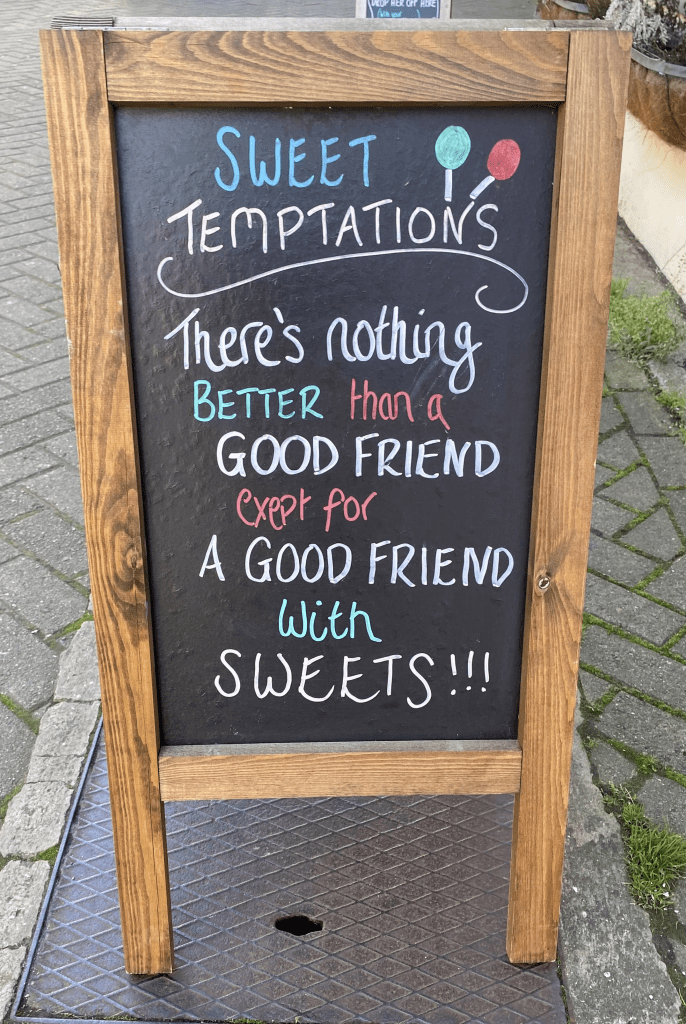 DROP HER OFF HERE
SWEET
TEMPTATIONS
There's nothing
BETTER than a
GOOD FRIEND
exept for
A GOOD FRIEND
with
SWEETS!!!